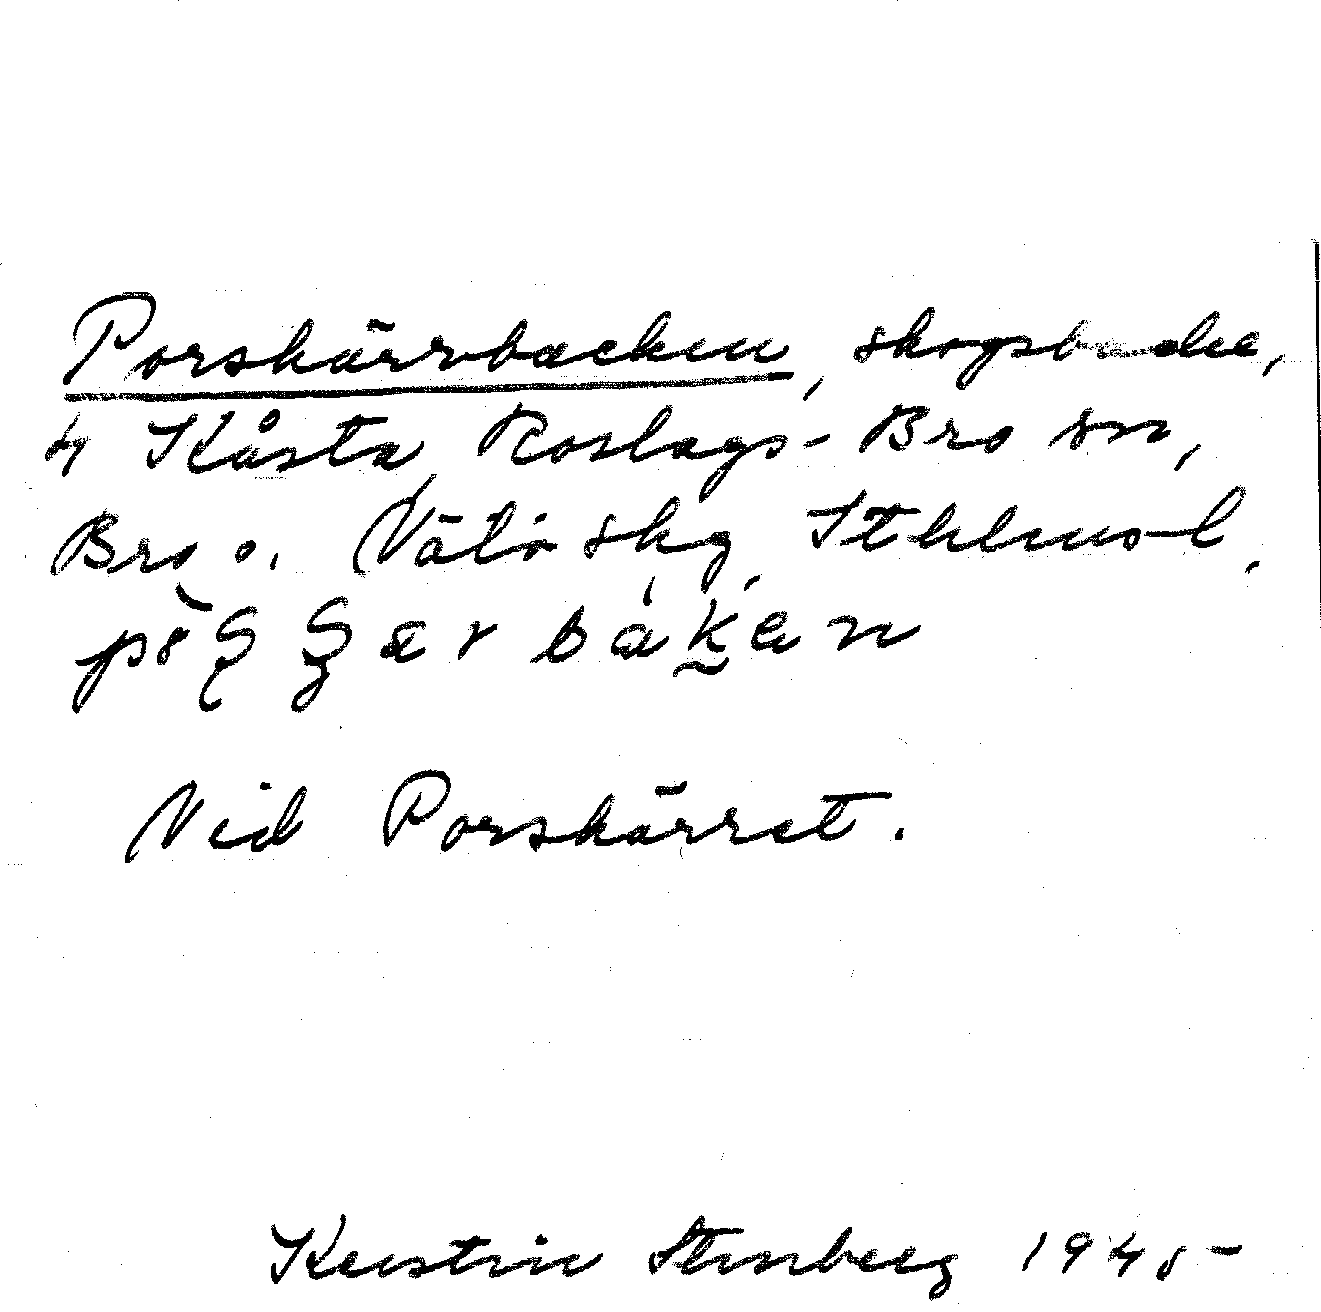 Porskärrbacken, skogsbacke,
4 Kåsta, Roslags-Bro sn,
Bro o. Vätö skg, Sthlms l.
Vid Porskärret.
Kerstin Stenberg 1945-